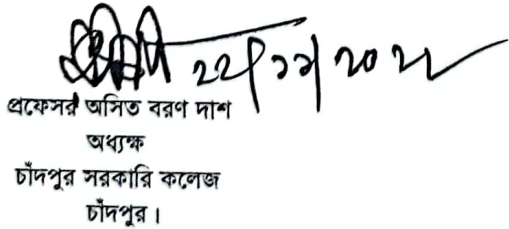 প্রফেসর অসিত বরণ দাশ
অধ্যক্ষ
চাঁদপুর সরকারি কলেজ
চাঁদপুর।